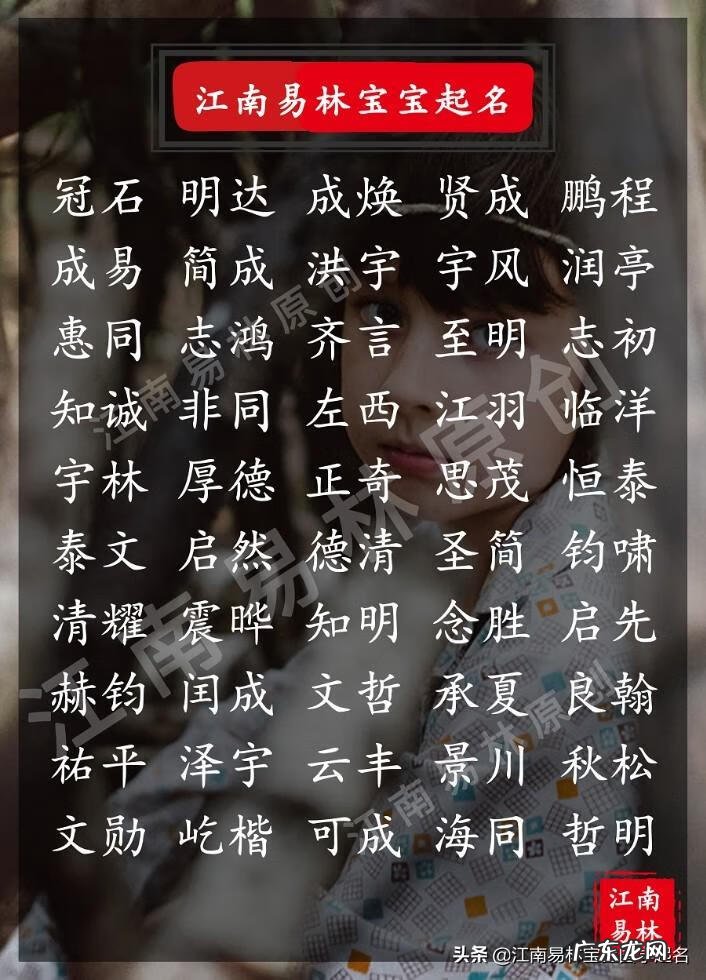 江南易林宝宝起名
冠石 明达 成焕 贤成 鹏程
成易 简成 洪宇 宇风 润亭
惠同 志鸿 齐言 至明 志初
知诚 非同 左西 江羽 临洋
宇林 厚德 正奇 思茂 恒泰
泰文 启然 德清 圣简 钧啸
清耀 震晔 知明 念胜 启先
赫钧 闰成 文哲 承夏 良翰
祐平 泽宇 云丰 景川 秋松
文勋 屹楷 可成 海同 哲明
江南易林原创
江南易林原创
江南易林原创
江南
易林
头条 @江南易林宝
起名
广东龙网